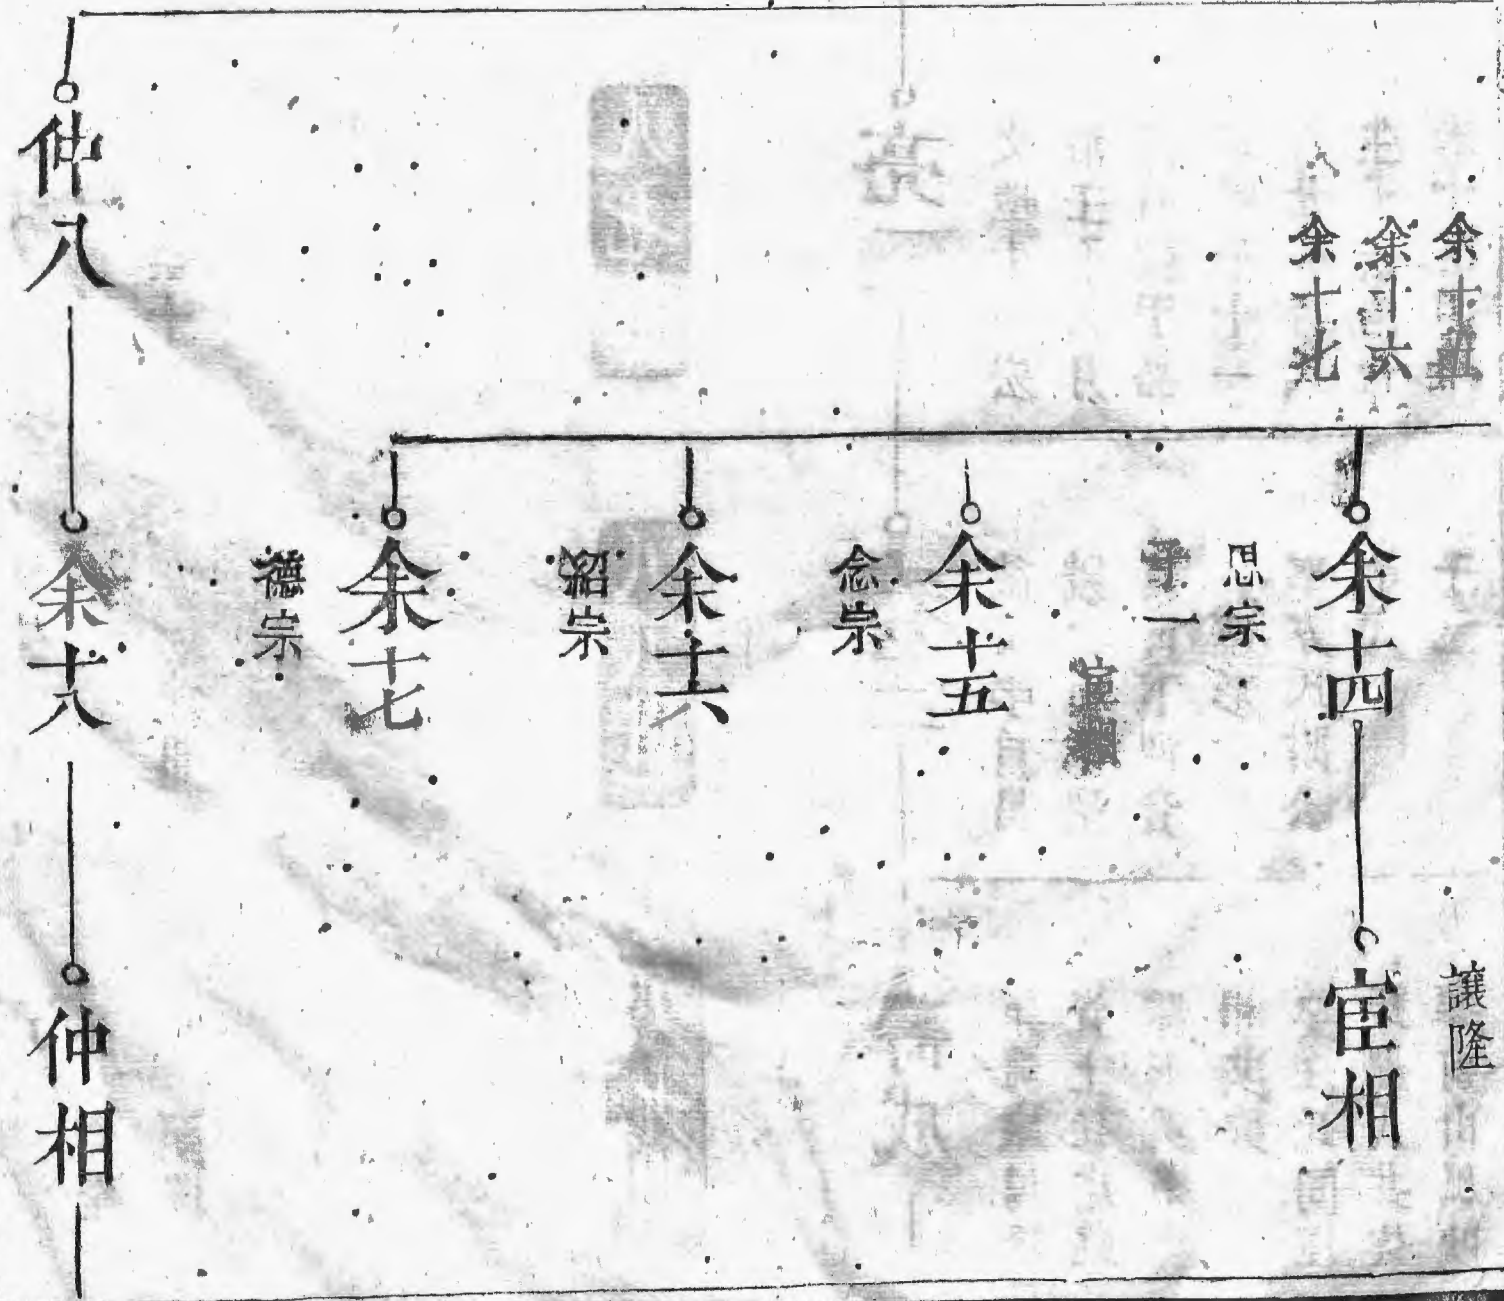 余十五
余十六
余十七
余十四
思宗
子一
宦相
余十五
念宗
余十六
紹宗
余十七
德宗
讓隆
宦相
仲八
余十八
仲相